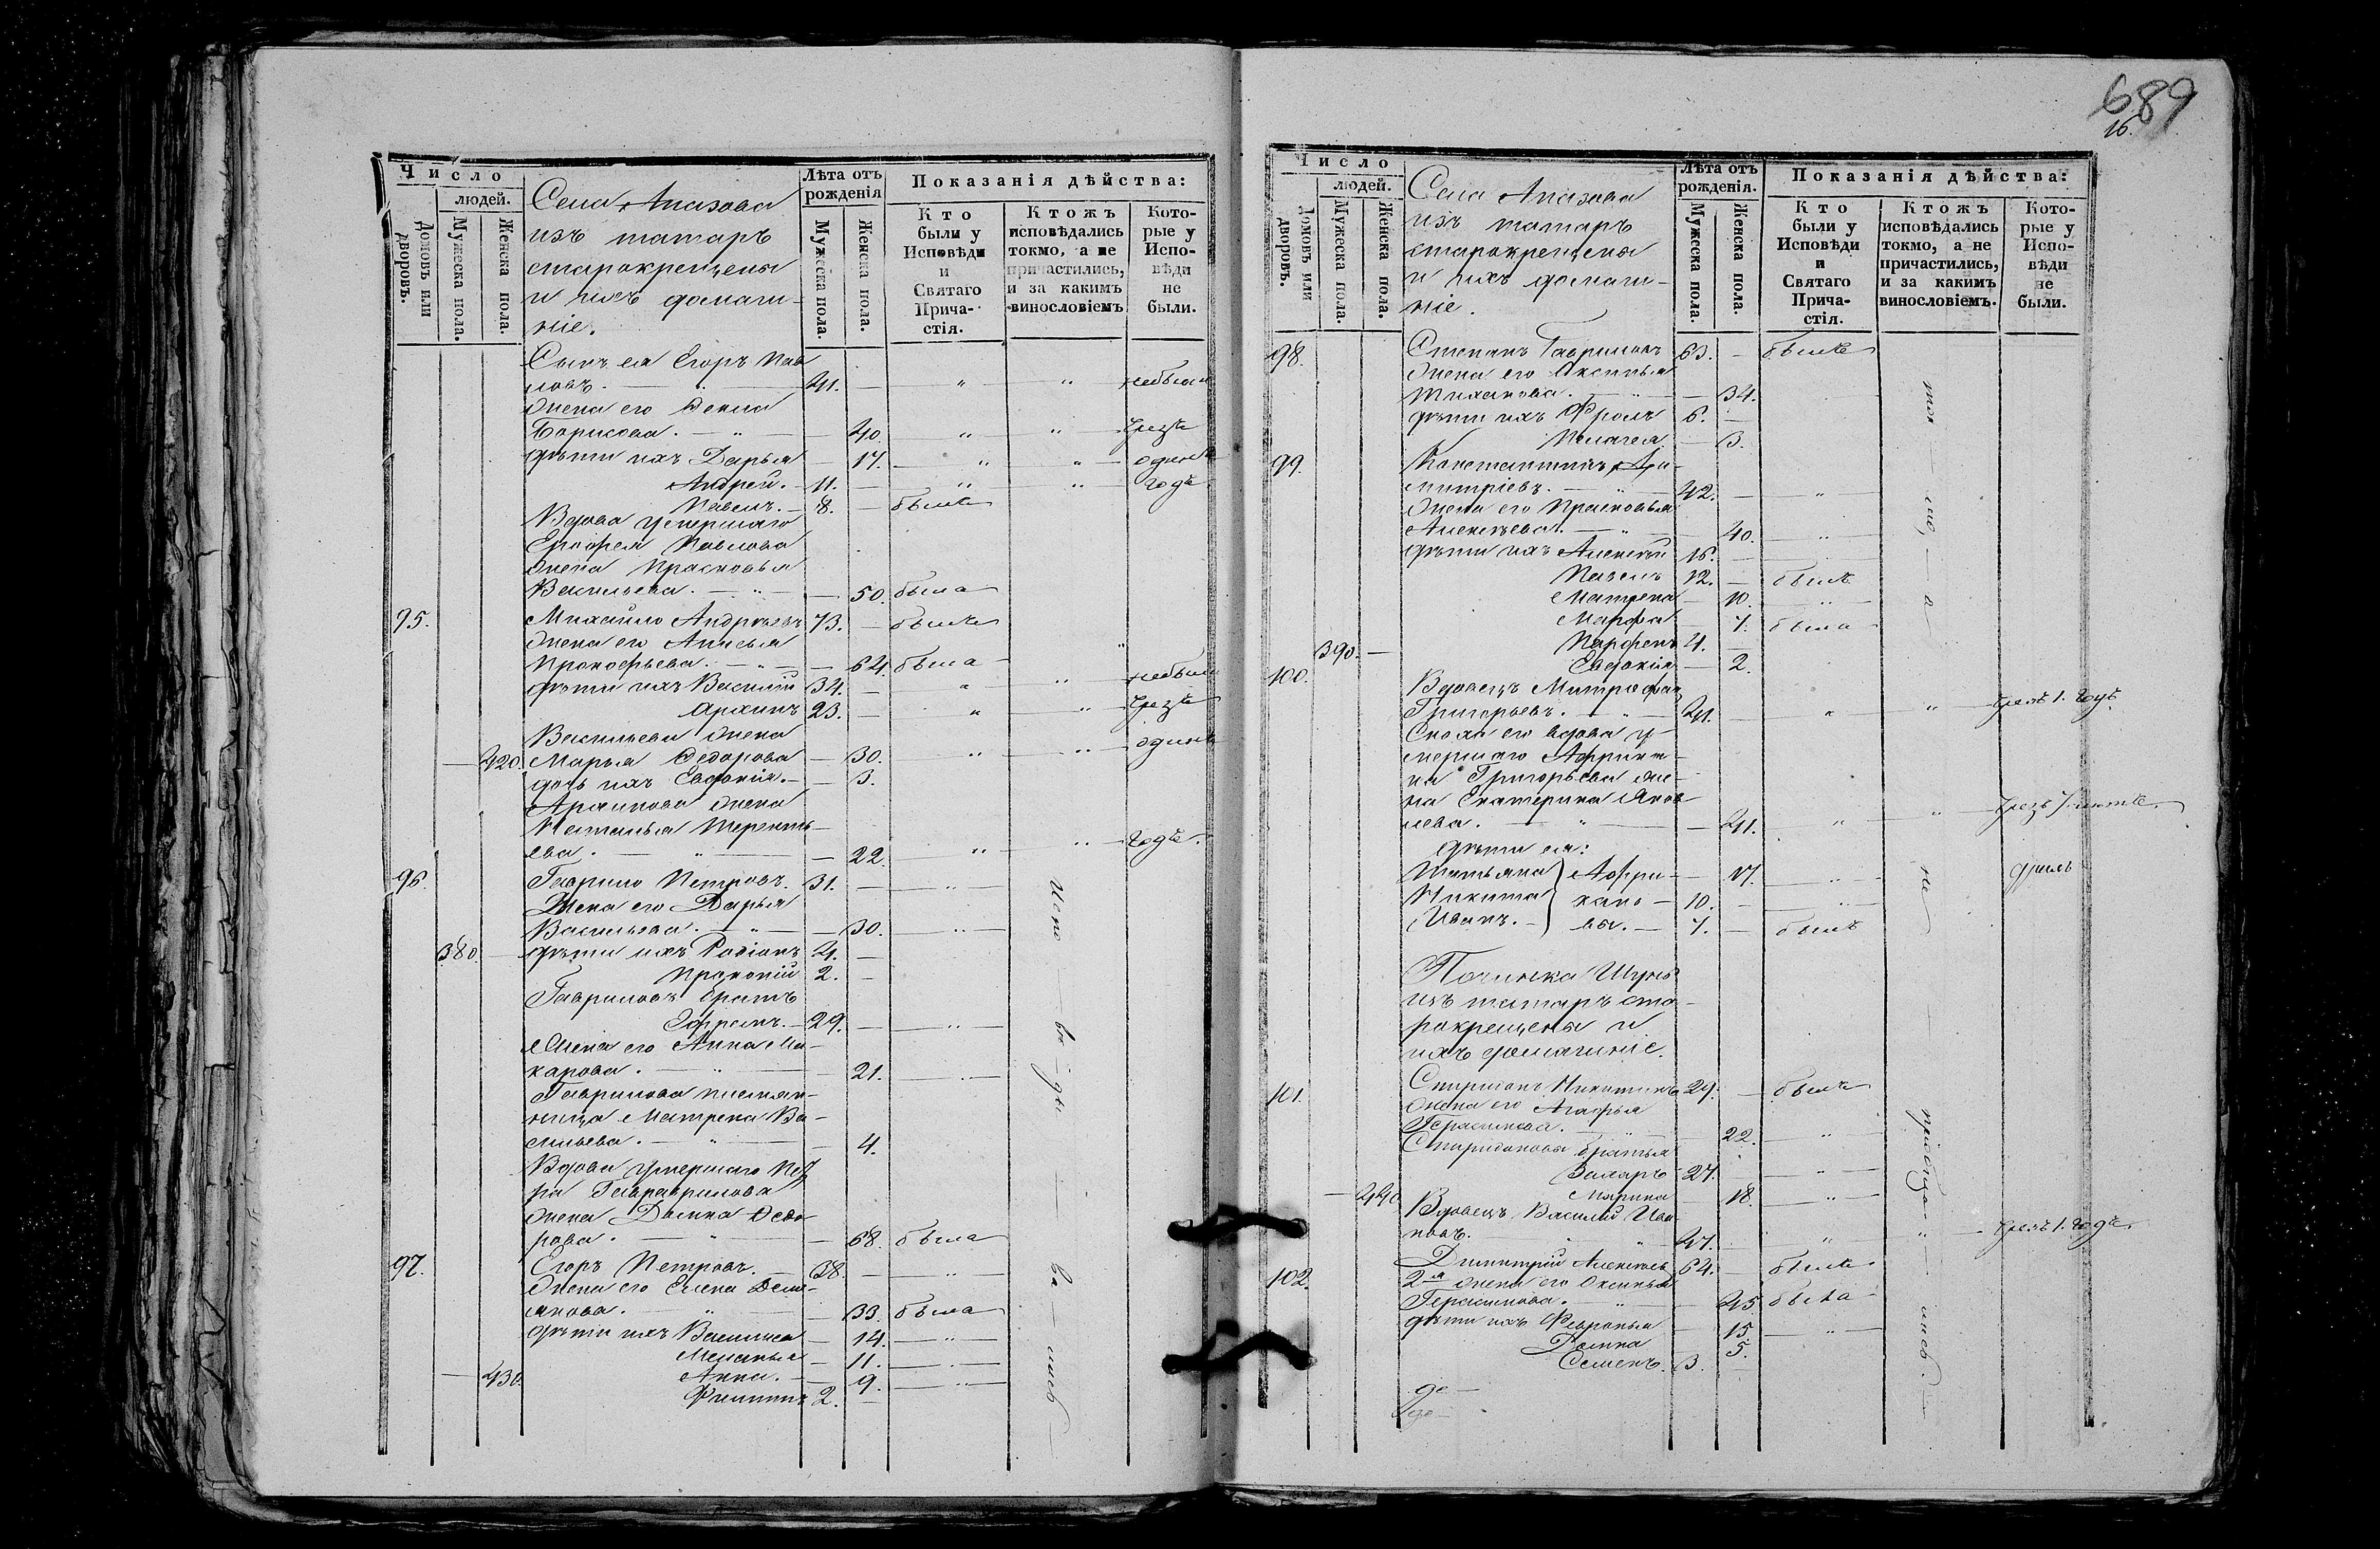 689
16.
Число
людей.
Домовъ или дворовъ.
Мужеска пола.
Женска пола.
Села Апазова
изъ татаръ
старокрещены
и ихъ домаш-
ніе.
Лѣта отъ рожденія
Мужеска пола.
Женска пола.
Показанія дѣйства:
Кто были у Исповѣди и Святаго Прича-стія.
Ктожъ исповѣдались токмо, а не причастились, и за какимъ винословіемъ
Кото-рые у Испо-вѣди не были.
Сынъ ея Егоръ Пав
ловъ. 41. — " " небыли
Жена его Фекла
Борисова. — " — 40. " " чрезъ
дѣти ихъ Дарья — 17. " " одинъ
Андрей. — 11. — " " годъ
Павелъ. — 8. — былъ
Вдова умершаго
Ерофея Павлова
жена Прасковья
Васильева. — " — 50. была
95. Михайло Андреевъ 73. — былъ
Жена его Анисья
Прокофьева. — " — 64. была
дѣти ихъ Василій 34. — " " небыли
Архипъ 23. — " " чрезъ
Васильева жена
420. Марья Федорова — 30. " " одинъ
дочь ихъ Евдокія. — 3.
Архипова жена
Наталья Теренть-
ева. — " — 22. " " годъ.
96. Гаврило Петровъ. 31. — "
Жена его Дарья
Васильева. — " — 30. "
380. дѣти ихъ Родіонъ 4. —
Прокопій 2. —
Гавриловъ братъ
Ефремъ. — 29. — "
Жена его Анна Ма-
карова. — " — 21. "
Гаврилова племян-
ница Матрена Ва-
сильева. — " — 4.
Вдова умершаго Пет
ра Гавраврилова
жена Домна Федо-
рова. — " — 68. была
97. Егоръ Петровъ. 38. — "
Жена его Елена Демь-
янова. — " — 33. была
дѣти ихъ Василиса — 14. "
Меланья — 11. "
430. Анна. — 9. "
Филиппъ 2. —
Число
людей.
Домовъ или дворовъ.
Мужеска пола.
Женска пола.
Села Апазова
изъ татаръ
старокрещены
и ихъ домаш-
ніе.
Лѣта отъ рожденія.
Мужеска пола.
Женска пола.
Показанія дѣйства:
Кто были у Исповѣди и Святаго Прича-стія.
Ктожъ исповѣдались токмо, а не причастились, и за какимъ винословіемъ.
Кото-рые у Испо-вѣди не были.
98. Степанъ Гавриловъ 63. — былъ
Жена его Аксинья
Тиханова. — " — 34.
дѣти ихъ Фролъ 6. —
Пелагея — 3.
99. Константинъ Ди-
митріевъ. — " 42. — "
Жена его Прасковья
Алексѣева. — " — 40. "
дѣти ихъ Алексѣй 16. —
Павелъ 12. — былъ
Матрена — 10. "
Марфа — 7. была
390. Парфенъ 4. —
Евдокія — 2.
100. Вдовецъ Митрофан
Григорьевъ. — " 41. — " " чрезъ 1. годъ
Сноха его вдова у-
мершаго
на Григорьева же-
на Екатерина Яков
лева. — " — 41. " " чрезъ 7. лѣтъ
дѣти ея:
Татьяна — 17. "
Никита 10. — "
Иванъ. 7. — былъ
Починка
изъ татаръ ста-
рокрещены и
ихъ домашніе.
101. Спиридонъ Никитинъ 29. — былъ
Жена его Агафья
Герасимова. — " — 22. "
Спиридоновы братья
Захаръ 27. — "
440 Марина — 18. "
Вдовецъ Василій Ива-
новъ. 47. — " " чрезъ 1. годъ
102. Димитрій Алексѣевъ 64. — былъ
2я жена его Оксинья
Герасимова. — " — 45. была
дѣти ихъ Февронья — 15. "
Домна — 5.
Семенъ. 3. —